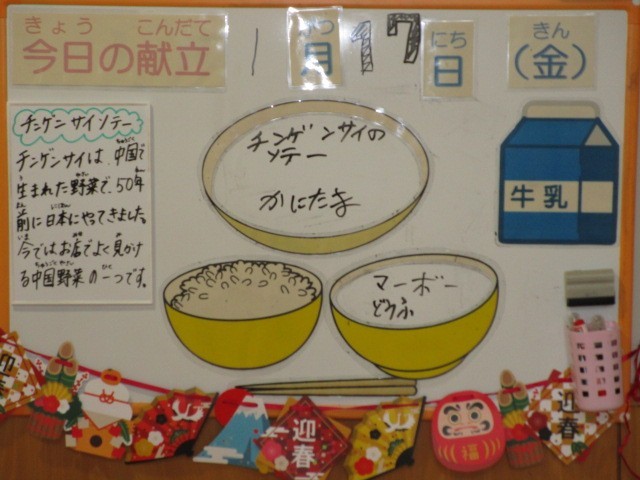 きょう こんだて
今日の献立
1 がつ 月 17 にち 日 きん (金)
チンゲンサイソテー
チンゲンサイは、中国で
生まれた野菜で、50年
前に日本にやってきました。
今ではお店でよく見かけ
る中国野菜の一つです。
チンゲンサイの
ソテー
かにたま
マーボー
どうふ
牛乳
迎春
迎春
福